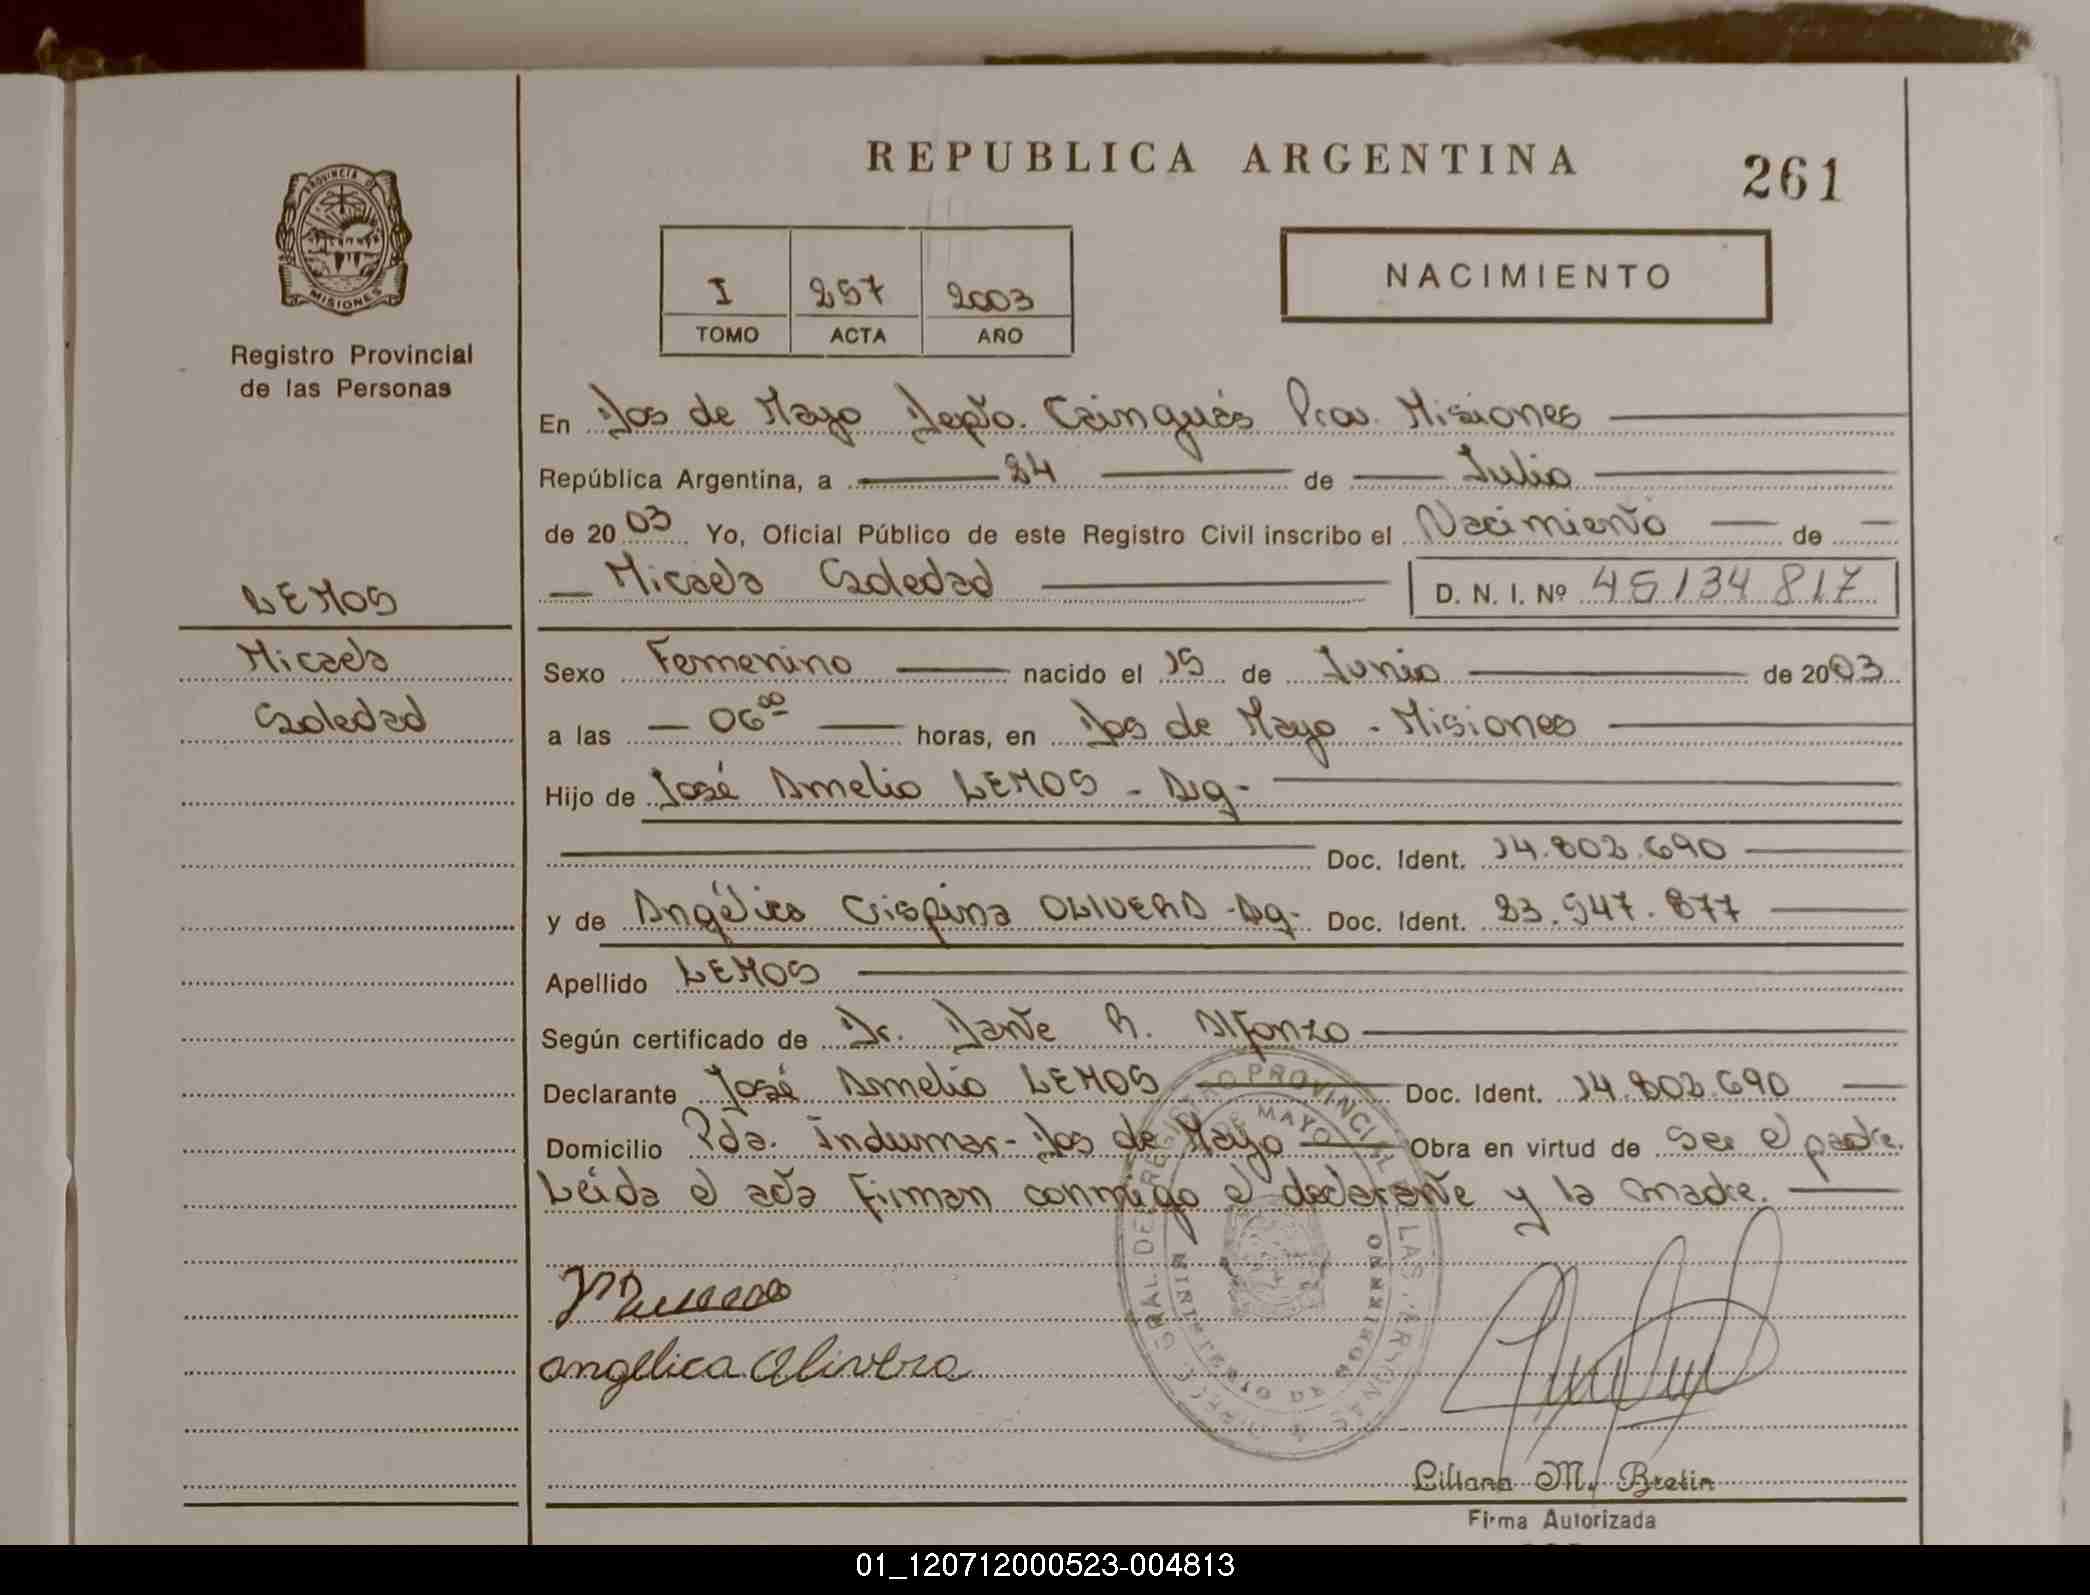 REPUBLICA ARGENTINA
261
PROVINCIA DE
MISIONES
Registro Provincial
de las Personas
I 257 2003
TOMO ACTA AÑO
NACIMIENTO
En Dos de Mayo Depto. Cainguás Prov. Misiones
República Argentina, a 24 de Julio
de 2003 Yo, Oficial Público de este Registro Civil inscribo el Nacimiento de
Micaela Soledad D. N. I. Nº 45134817
LEMOS
Micaela
Soledad
Sexo Femenino nacido el 15 de Junio de 2003
a las 06⁰⁰ horas, en Dos de Mayo - Misiones
Hijo de José Amelio LEMOS - Arg-
Doc. Ident. 14.802.690
y de Angélica Crispina OLIVERA -Arg- Doc. Ident. 23.947.877
Apellido LEMOS
Según certificado de Dr. Dante R. Alfonzo
Declarante José Amelio LEMOS Doc. Ident. 14.802.690
Domicilio Pda. Indumar- Dos de Mayo Obra en virtud de ser el padre.
Leída el acta firman conmigo el declarante y la madre.
angelica Olivera
GRAL. DEL REGISTRO PROVINCIAL DE LAS PERSONAS
DOS DE MAYO
MINISTERIO DE GOBIERNO
Liliana M. Bretin
Firma Autorizada
01_120712000523-004813